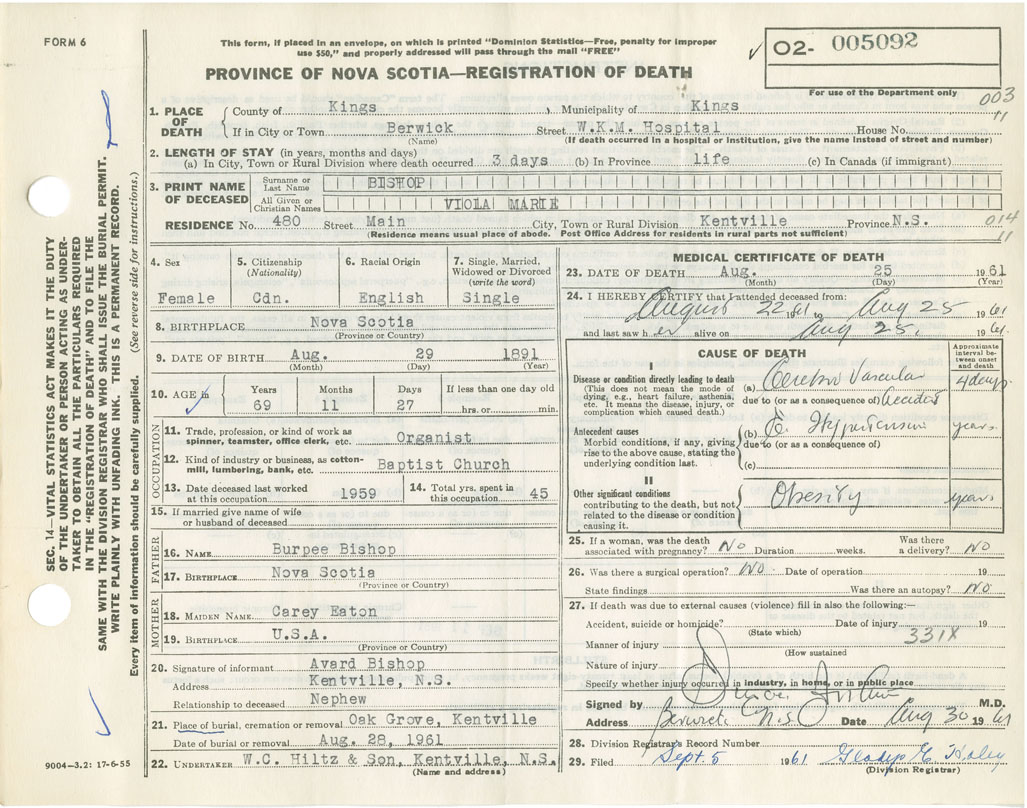 FORM 6
This form, if placed in an envelope, on which is printed "Dominion Statistics—Free, penalty for improper
use $50," and properly addressed will pass through the mail "FREE"
O2- 005092
For use of the Department only
PROVINCE OF NOVA SCOTIA—REGISTRATION OF DEATH
003
11
1. PLACE OF DEATH
County of Kings Municipality of Kings
If in City or Town Berwick Street W.K.M. Hospital House No.
(Name) (If death occurred in a hospital or institution, give the name instead of street and number)
2. LENGTH OF STAY (in years, months and days)
(a) In City, Town or Rural Division where death occurred 3 days (b) In Province life (c) In Canada (if immigrant)
3. PRINT NAME OF DECEASED
Surname or Last Name BISHOP
All Given or Christian Names VIOLA MARIE
RESIDENCE No. 480 Street Main City, Town or Rural Division Kentville Province N.S.
(Residence means usual place of abode. Post Office Address for residents in rural parts not sufficient)
014
11
4. Sex
Female
5. Citizenship
(Nationality)
Cdn.
6. Racial Origin
English
7. Single, Married,
Widowed or Divorced
(write the word)
Single
8. BIRTHPLACE Nova Scotia
(Province or Country)
9. DATE OF BIRTH Aug. 29 1891
(Month) (Day) (Year)
10. AGE in
Years Months Days If less than one day old
69 11 27 hrs. or min.
OCCUPATION
11. Trade, profession, or kind of work as
spinner, teamster, office clerk, etc. Organist
12. Kind of industry or business, as cotton-
mill, lumbering, bank, etc. Baptist Church
13. Date deceased last worked
at this occupation 1959
14. Total yrs. spent in
this occupation 45
15. If married give name of wife
or husband of deceased
FATHER
16. NAME Burpee Bishop
17. BIRTHPLACE Nova Scotia
(Province or Country)
MOTHER
18. MAIDEN NAME Carey Eaton
19. BIRTHPLACE U.S.A.
(Province or Country)
20. Signature of informant Avard Bishop
Address Kentville, N.S.
Relationship to deceased Nephew
21. Place of burial, cremation or removal Oak Grove, Kentville
Date of burial or removal Aug. 28, 1961
22. UNDERTAKER W.C. Hiltz & Son, Kentville, N.S.
(Name and address)
MEDICAL CERTIFICATE OF DEATH
23. DATE OF DEATH Aug. 25 1961
(Month) (Day) (Year)
24. I HEREBY CERTIFY that I attended deceased from:
August 22, 61 to Aug 25 1961
and last saw her alive on Aug 25, 1961
CAUSE OF DEATH
Approximate
interval be-
tween onset
and death
I
Disease or condition directly leading to death
(This does not mean the mode of
dying, e.g., heart failure, asthenia,
etc. It means the disease, injury, or
complication which caused death.)
(a) Cerebro Vascular 4 days
due to (or as a consequence of) Accident
Antecedent causes
Morbid conditions, if any, giving
rise to the above cause, stating the
underlying condition last.
(b) Hypertension years
due to (or as a consequence of)
(c)
II
Other significant conditions
contributing to the death, but not
related to the disease or condition
causing it.
Obesity years
25. If a woman, was the death
associated with pregnancy? No Duration weeks. Was there
a delivery? No
26. Was there a surgical operation? No Date of operation 19
State findings Was there an autopsy? No
27. If death was due to external causes (violence) fill in also the following:—
Accident, suicide or homicide? Date of injury 19
(State which)
331X
Manner of injury
(How sustained
Nature of injury
Specify whether injury occurred in industry, in home, or in public place
Signed by M.D.
Address Berwick N.S. Date Aug 30 1961
28. Division Registrar's Record Number
29. Filed Sept. 5 1961 Gladys E. Haley
(Division Registrar)
SEC. 14—VITAL STATISTICS ACT MAKES IT THE DUTY
OF THE UNDERTAKER OR PERSON ACTING AS UNDER-
TAKER TO OBTAIN ALL THE PARTICULARS REQUIRED
IN THE "REGISTRATION OF DEATH" AND TO FILE THE
SAME WITH THE DIVISION REGISTRAR WHO SHALL ISSUE THE BURIAL PERMIT.
WRITE PLAINLY WITH UNFADING INK. THIS IS A PERMANENT RECORD.
Every item of information should be carefully supplied. (See reverse side for instructions.)
9004—3.2: 17-6-55